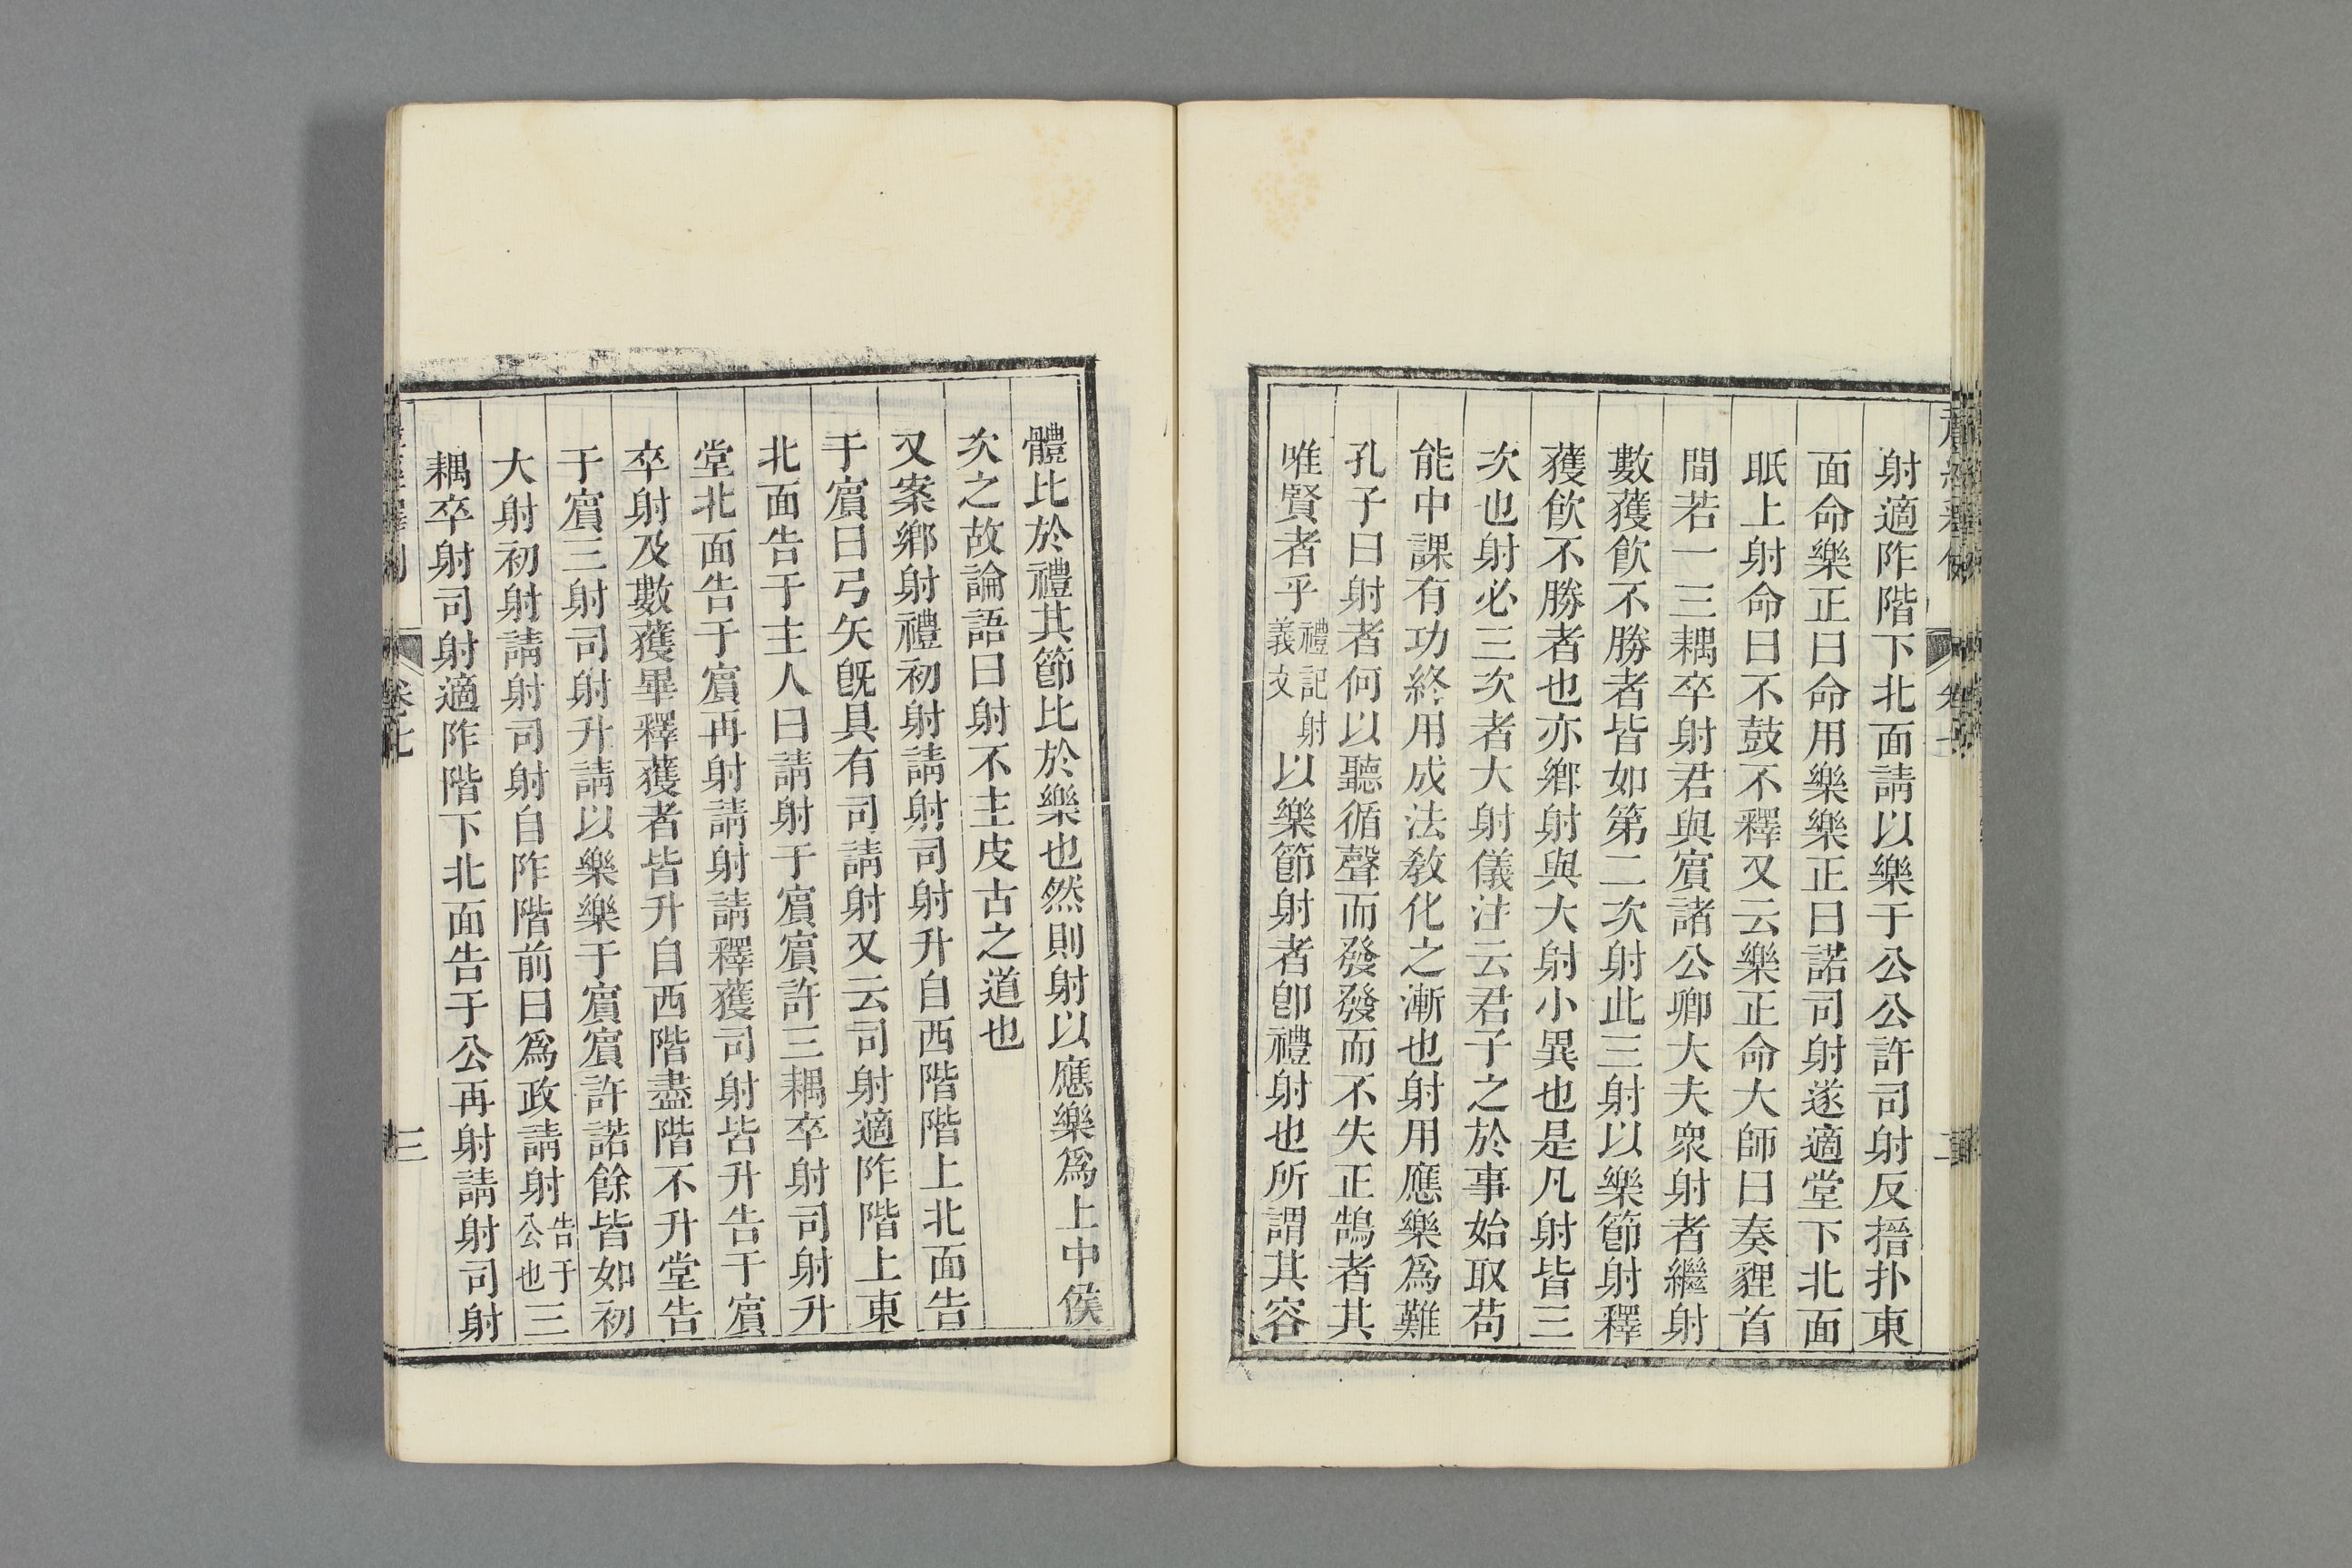 射適阼階下北面請以樂于公公許司射反搢扑東
面命樂正曰命用樂樂正曰諾司射遂適堂下北面
眂上射命曰不鼓不釋又云樂正命大師曰奏貍首
間若一三耦卒射君與賔諸公卿大夫衆射者繼射
數獲飮不勝者皆如第二次射此三射以樂節射釋
獲飮不勝者也亦鄉射與大射小異也是凡射皆三
次也射必三次者大射儀注云君子之於事始取苟
能中課有功終用成法教化之漸也射用應樂爲難
孔子曰射者何以聽循聲而發發而不失正鵠者其
唯賢者乎禮記射義文以樂節射者卽禮射也所謂其容
體比於禮其節比於樂也然則射以應樂爲上中侯
次之故論語曰射不主皮古之道也
又案鄉射禮初射請射司射升自西階階上北面告
于賔曰弓矢旣具有司請射又云司射適阼階上東
北面告于主人曰請射于賔賔許三耦卒射司射升
堂北面告于賔再射請射請釋獲司射皆升告于賔
卒射及數獲畢釋獲者皆升自西階盡階不升堂告
于賔三射司射升請以樂樂于賔賔許諾餘皆如初
大射初射請射司射自阼階前曰爲政請射告于公也三
耦卒射司射適阼階下北面告于公再射請射司射
卷七
三